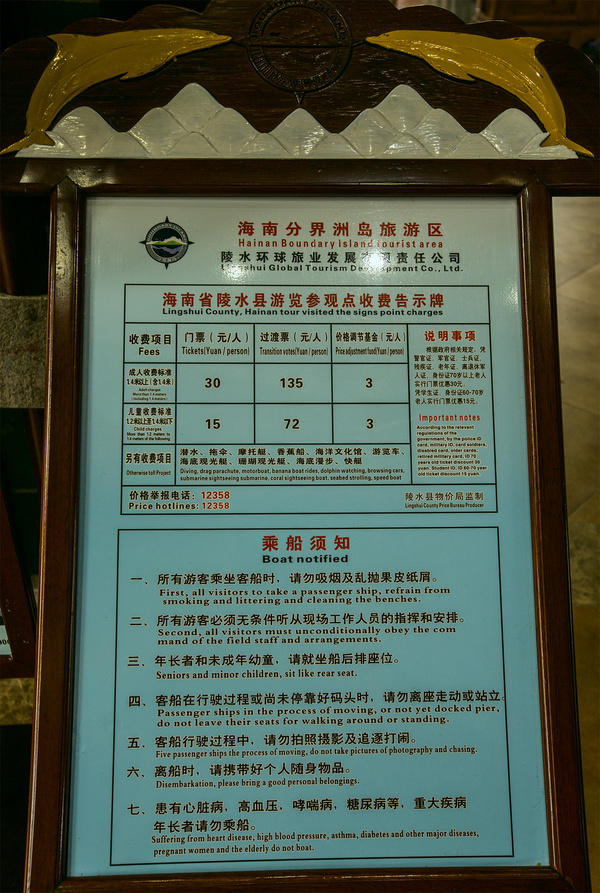 海南分界洲岛旅游区
Hainan Boundary Island tourist area
陵水环球旅业发展有限责任公司
Lingshui Global Tourism Development Co., Ltd.
海南省陵水县游览参观点收费告示牌
Lingshui County, Hainan tour visited the signs point charges
收费项目
Fees
门票（元/人）
Tickets(Yuan / person)
过渡票（元/人）
Transition votes(Yuan / person)
价格调节基金（元/人）
Price adjustment fund(Yuan / person)
成人收费标准
1.4米以上(含1.4米)
Adult charges
More than 1.4 meters
(including 1.4 meters)
30
135
3
儿童收费标准
1.2米以上至1.4米以下
Child charges
More than 1.2 meters to
1.4 meters of the following
15
72
3
另有收费项目
Otherwise toll Project
潜水、拖伞、摩托艇、香蕉船、海洋文化馆、游览车、
海底观光艇、珊瑚观光艇、海底漫步、快艇
Diving, drag parachute, motorboat, banana boat rides, dolphin watching, browsing cars,
submarine sightseeing submarine, coral sightseeing boat, seabed strolling, speed boat
说明事项
根据政府相关规定，凭
警官证、军官证、士兵证、
残疾证、老年证、离退休军
人证、身份证70岁以上老人
实行门票优惠30元。
凭学生证、身份证60-70岁
老人实行门票优惠15元。
Important notes
According to the relevant
regulations of the
government, by the police ID
card, military ID, card soldiers,
disabled card, older cards,
retired military card, ID 70
years old ticket discount 30
yuan. Student ID, ID 60-70 year
old ticket discount 15 yuan.
价格举报电话：12358
Price hotlines: 12358
陵水县物价局监制
Lingshui County Price Bureau Producer
乘船须知
Boat notified
一、所有游客乘坐客船时，请勿吸烟及乱抛果皮纸屑。
First, all visitors to take a passenger ship, refrain from
smoking and littering and cleaning the benches.
二、所有游客必须无条件听从现场工作人员的指挥和安排。
Second, all visitors must unconditionally obey the com
mand of the field staff and arrangements.
三、年长者和未成年幼童，请就坐船后排座位。
Seniors and minor children, sit like rear seat.
四、客船在行驶过程或尚未停靠好码头时，请勿离座走动或站立.
Passenger ships in the process of moving, or not yet docked pier,
do not leave their seats for walking around or standing.
五、客船行驶过程中，请勿拍照摄影及追逐打闹。
Five passenger ships the process of moving, do not take pictures of photography and chasing.
六、离船时，请携带好个人随身物品。
Disembarkation, please bring a good personal belongings.
七、患有心脏病，高血压，哮喘病，糖尿病等，重大疾病
年长者请勿乘船。
Suffering from heart disease, high blood pressure, asthma, diabetes and other major diseases,
pregnant women and the elderly do not boat.